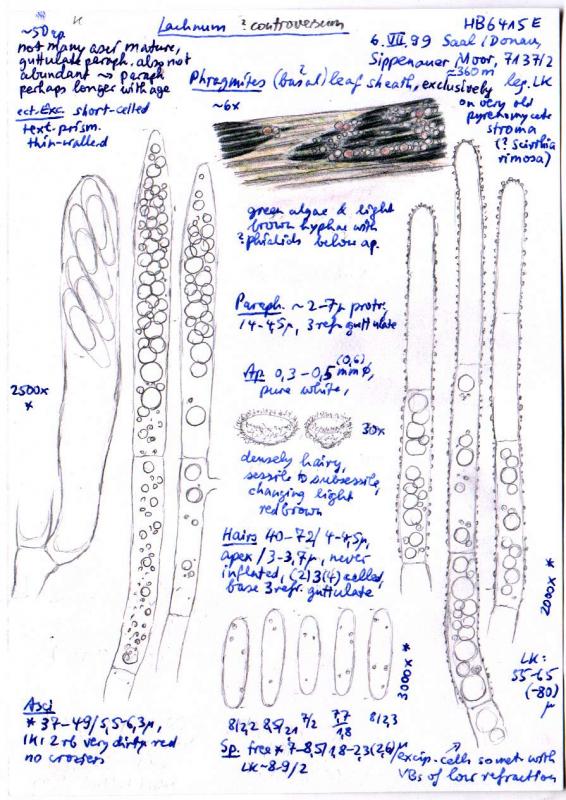 ~50 ap.
not many asci mature,
guttulate paraph. also not
abundant → paraph
perhaps longer with age
ect. Exc. short-celled
text. prism.
thin-walled
Lachnum ? controversum
HB 6415 E
6. VII. 99 Saal / Donau,
Sippenauer Moor, 7137/2
≈360m
leg. LK
Phragmites (basal ?) leaf sheath, exclusively
on very old
pyrenomycete
stroma
(? Scirrhia
rimosa)
~6x
green algae & light
brown hyphae with
? phialids below ap.
Paraph. ~2-7µ protr.,
/4-4,5µ, 3 refr. guttulate
Ap 0,3-0,5 (0,6) mm ø,
pure white,
30x
densely hairy,
sessile to subsessile,
changing light
redbrown
Hairs 40-72/4-4,5µ,
apex /3-3,7µ, never
inflated, (2)3(4) celled,
base 3 refr. guttulate
2500x
*
2000x *
3000x *
LK:
55-65
(-80)
µ
8/2,2 8,5/2,1 7/2 7,7/1,8 8/2,3
Sp. free * 7-8,5/1,8-2,3(2,6)µ
LK ~8-9/2
Asci
* 37-49/5,5-6,3µ,
IKI: 2 rb very dirty red
no croziers
excip. cells somet. with
VBs of low refraction